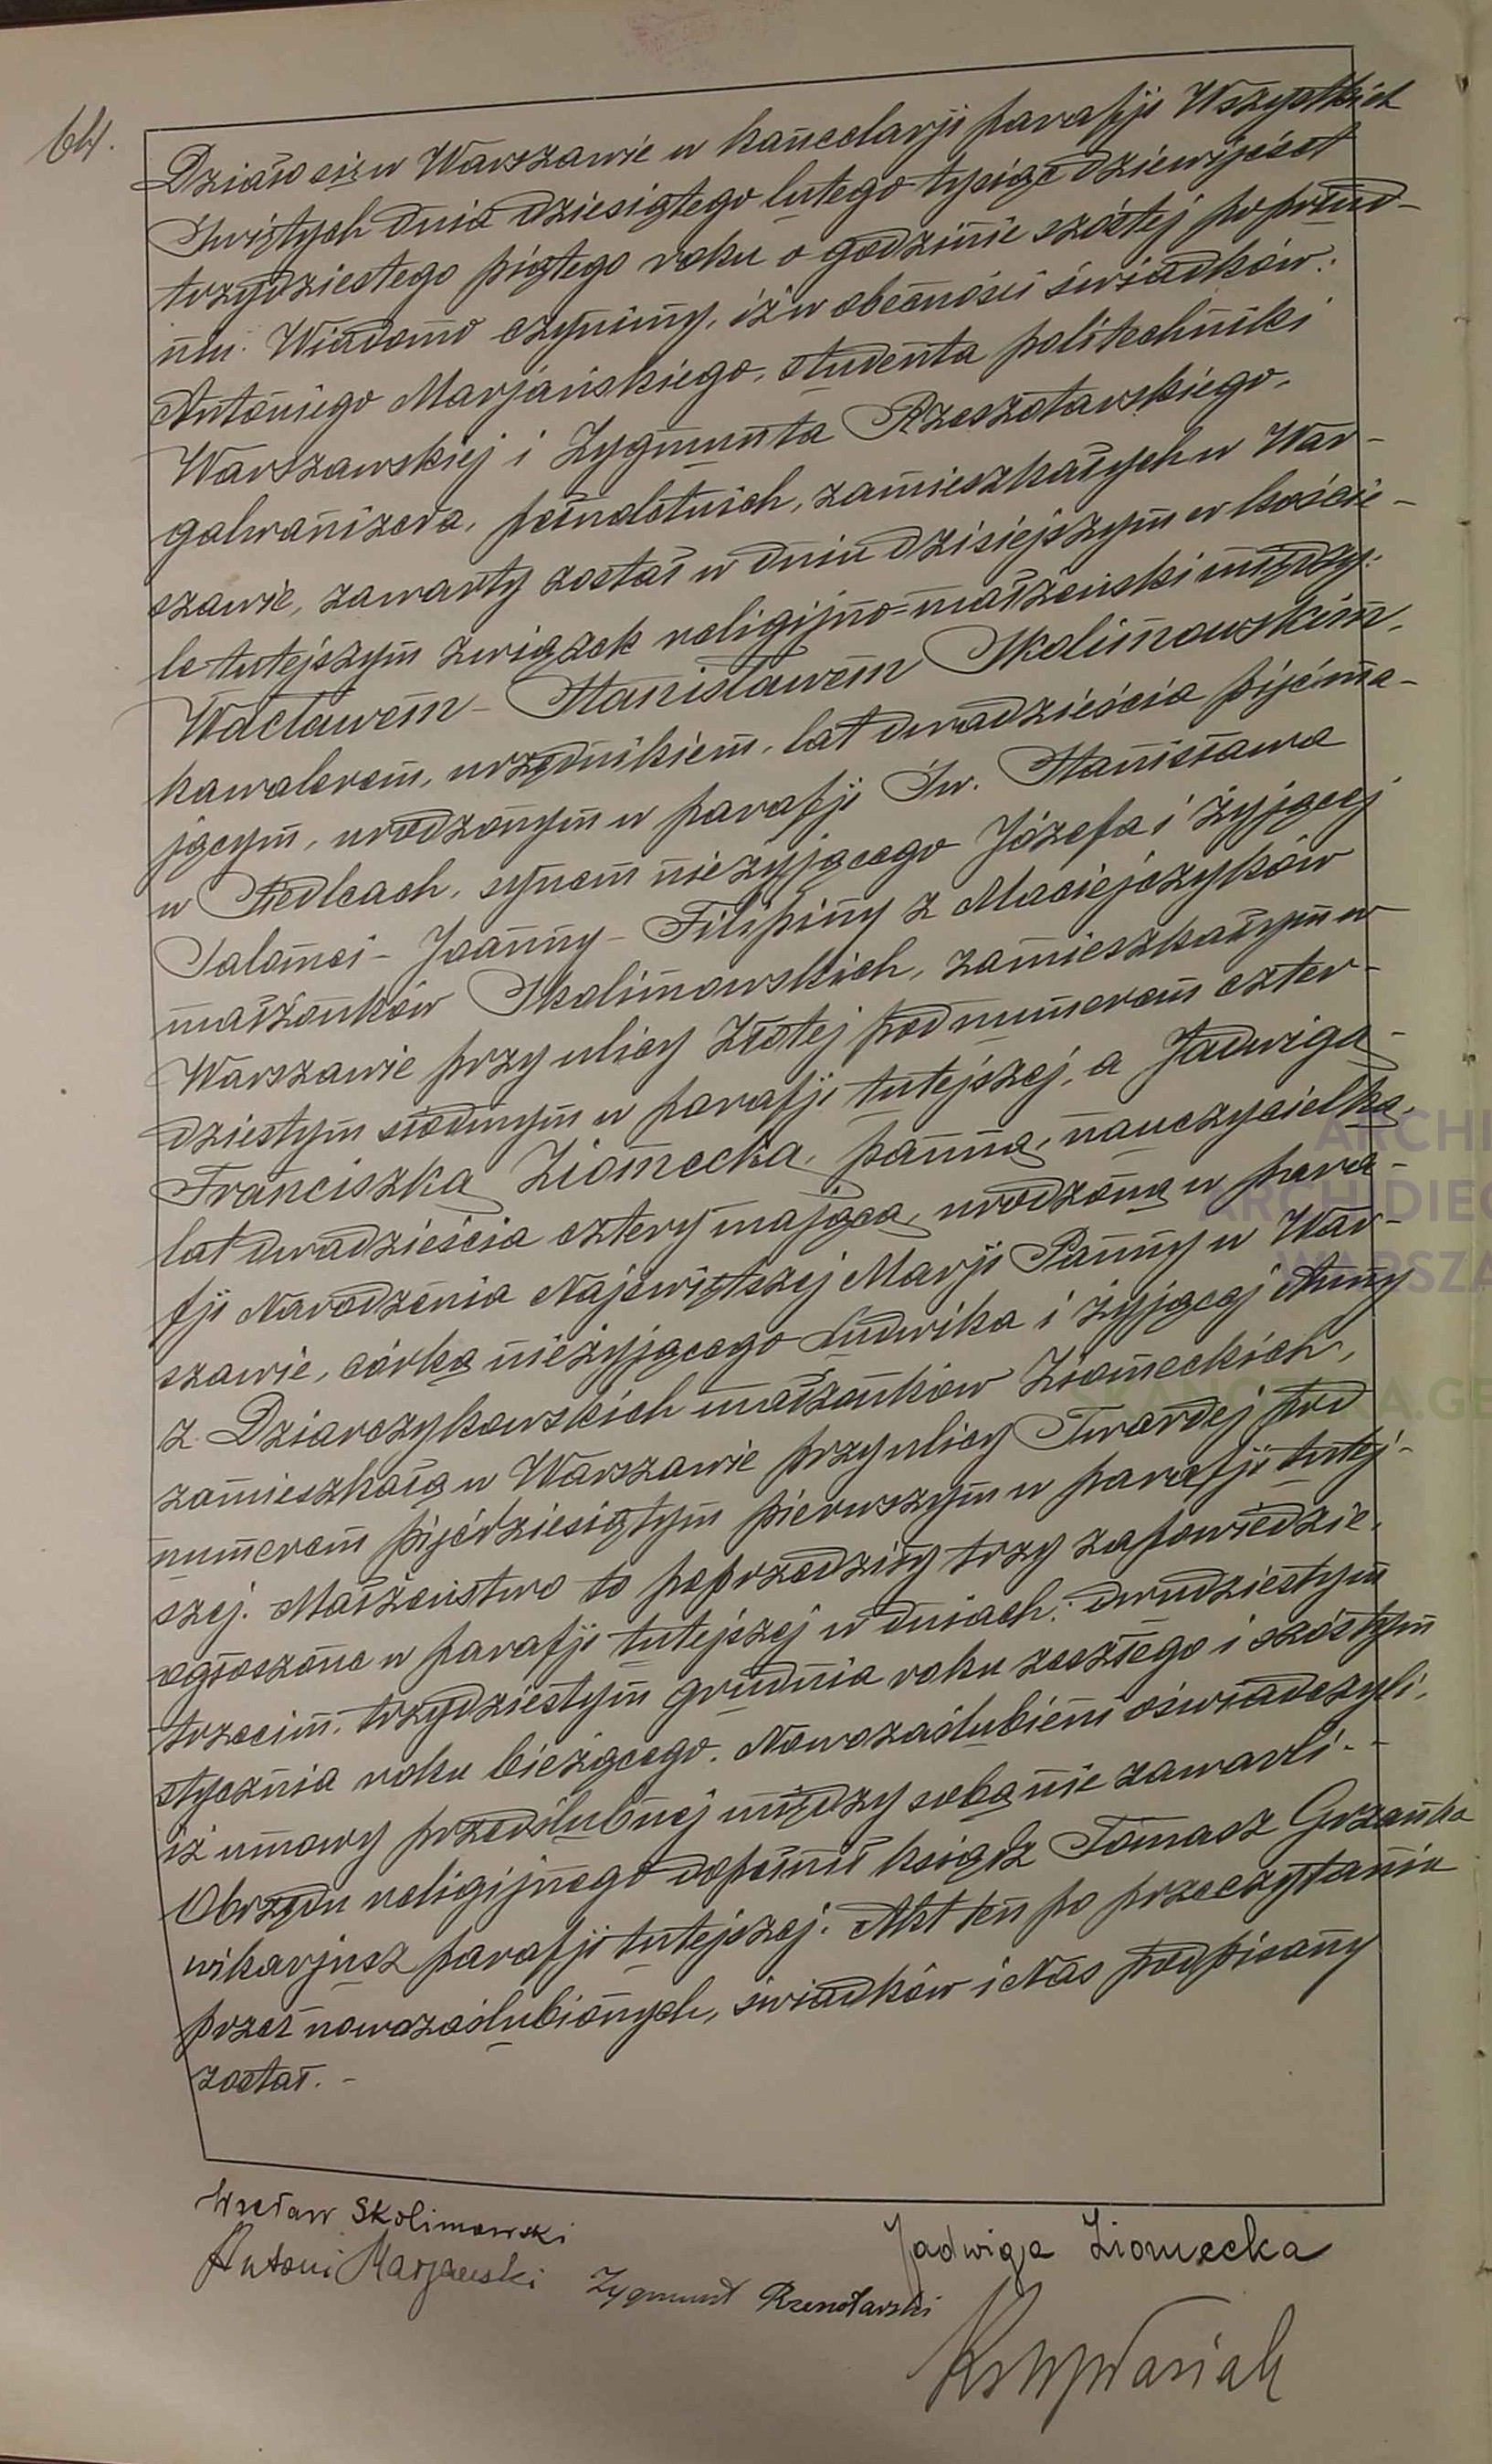 64.
Działo się w Warszawie w kancelarji parafji Wszystkich
Świętych dnia dziesiątego lutego tysiąc dziewięćset
trzydziestego piątego roku o godzinie szóstej po połud-
niu. Wiadomo czynimy, iż w obecności świadków:
Antoniego Marjańskiego, studenta politechniki
Warszawskiej i Zygmunta Rzeszotarskiego,
galwanizera, pełnoletnich, zamieszkałych w War-
szawie, zawarty został w dniu dzisiejszym w koście-
le tutejszym związek religijno=małżeński między:
Wacławem - Stanisławem Skolimowskim,
kawalerem, urzędnikiem, lat dwadzieścia pięć ma-
jącym, urodzonym w parafji Św. Stanisława
w Siedlcach, synem nieżyjącego Józefa i żyjącej
Salomei - Joanny - Filipiny z Maciejczyków
małżonków Skolimowskich, zamieszkałym w
Warszawie przy ulicy Złotej pod numerem czter-
dziestym siódmym w parafji tutejszej, a Jadwigą -
Franciszką Ziomecką, panną, nauczycielką,
lat dwadzieścia cztery mającą, urodzoną w para-
fji Narodzenia Najświętszej Marji Panny w War-
szawie, córką nieżyjącego Ludwika i żyjącej Anny
z Dziarczykowskich małżonków Ziomeckich,
zamieszkałą w Warszawie przy ulicy Twardej pod
numerem pięćdziesiątym pierwszym w parafji tutej-
szej. Małżeństwo to poprzedziły trzy zapowiedzie,
ogłoszone w parafji tutejszej w dniach: dwudziestym
trzecim, trzydziestym grudnia roku zeszłego i szóstym
stycznia roku bieżącego. Nowozaślubieni oświadczyli,
iż umowy przedślubnej między sobą nie zawarli. -
Obrzędu religijnego dopełnił ksiądz Tomasz Grzanka
wikarjusz parafji tutejszej. Akt ten po przeczytaniu
przez nowozaślubionych, świadków i Nas podpisany
został. -
Wacław Skolimowski
Jadwiga Ziomecka
Antoni Marjański Zygmunt Rzeszotarski
ARCHI
ARCHIDIEC
WARSZA
SKANOTEKA.GE